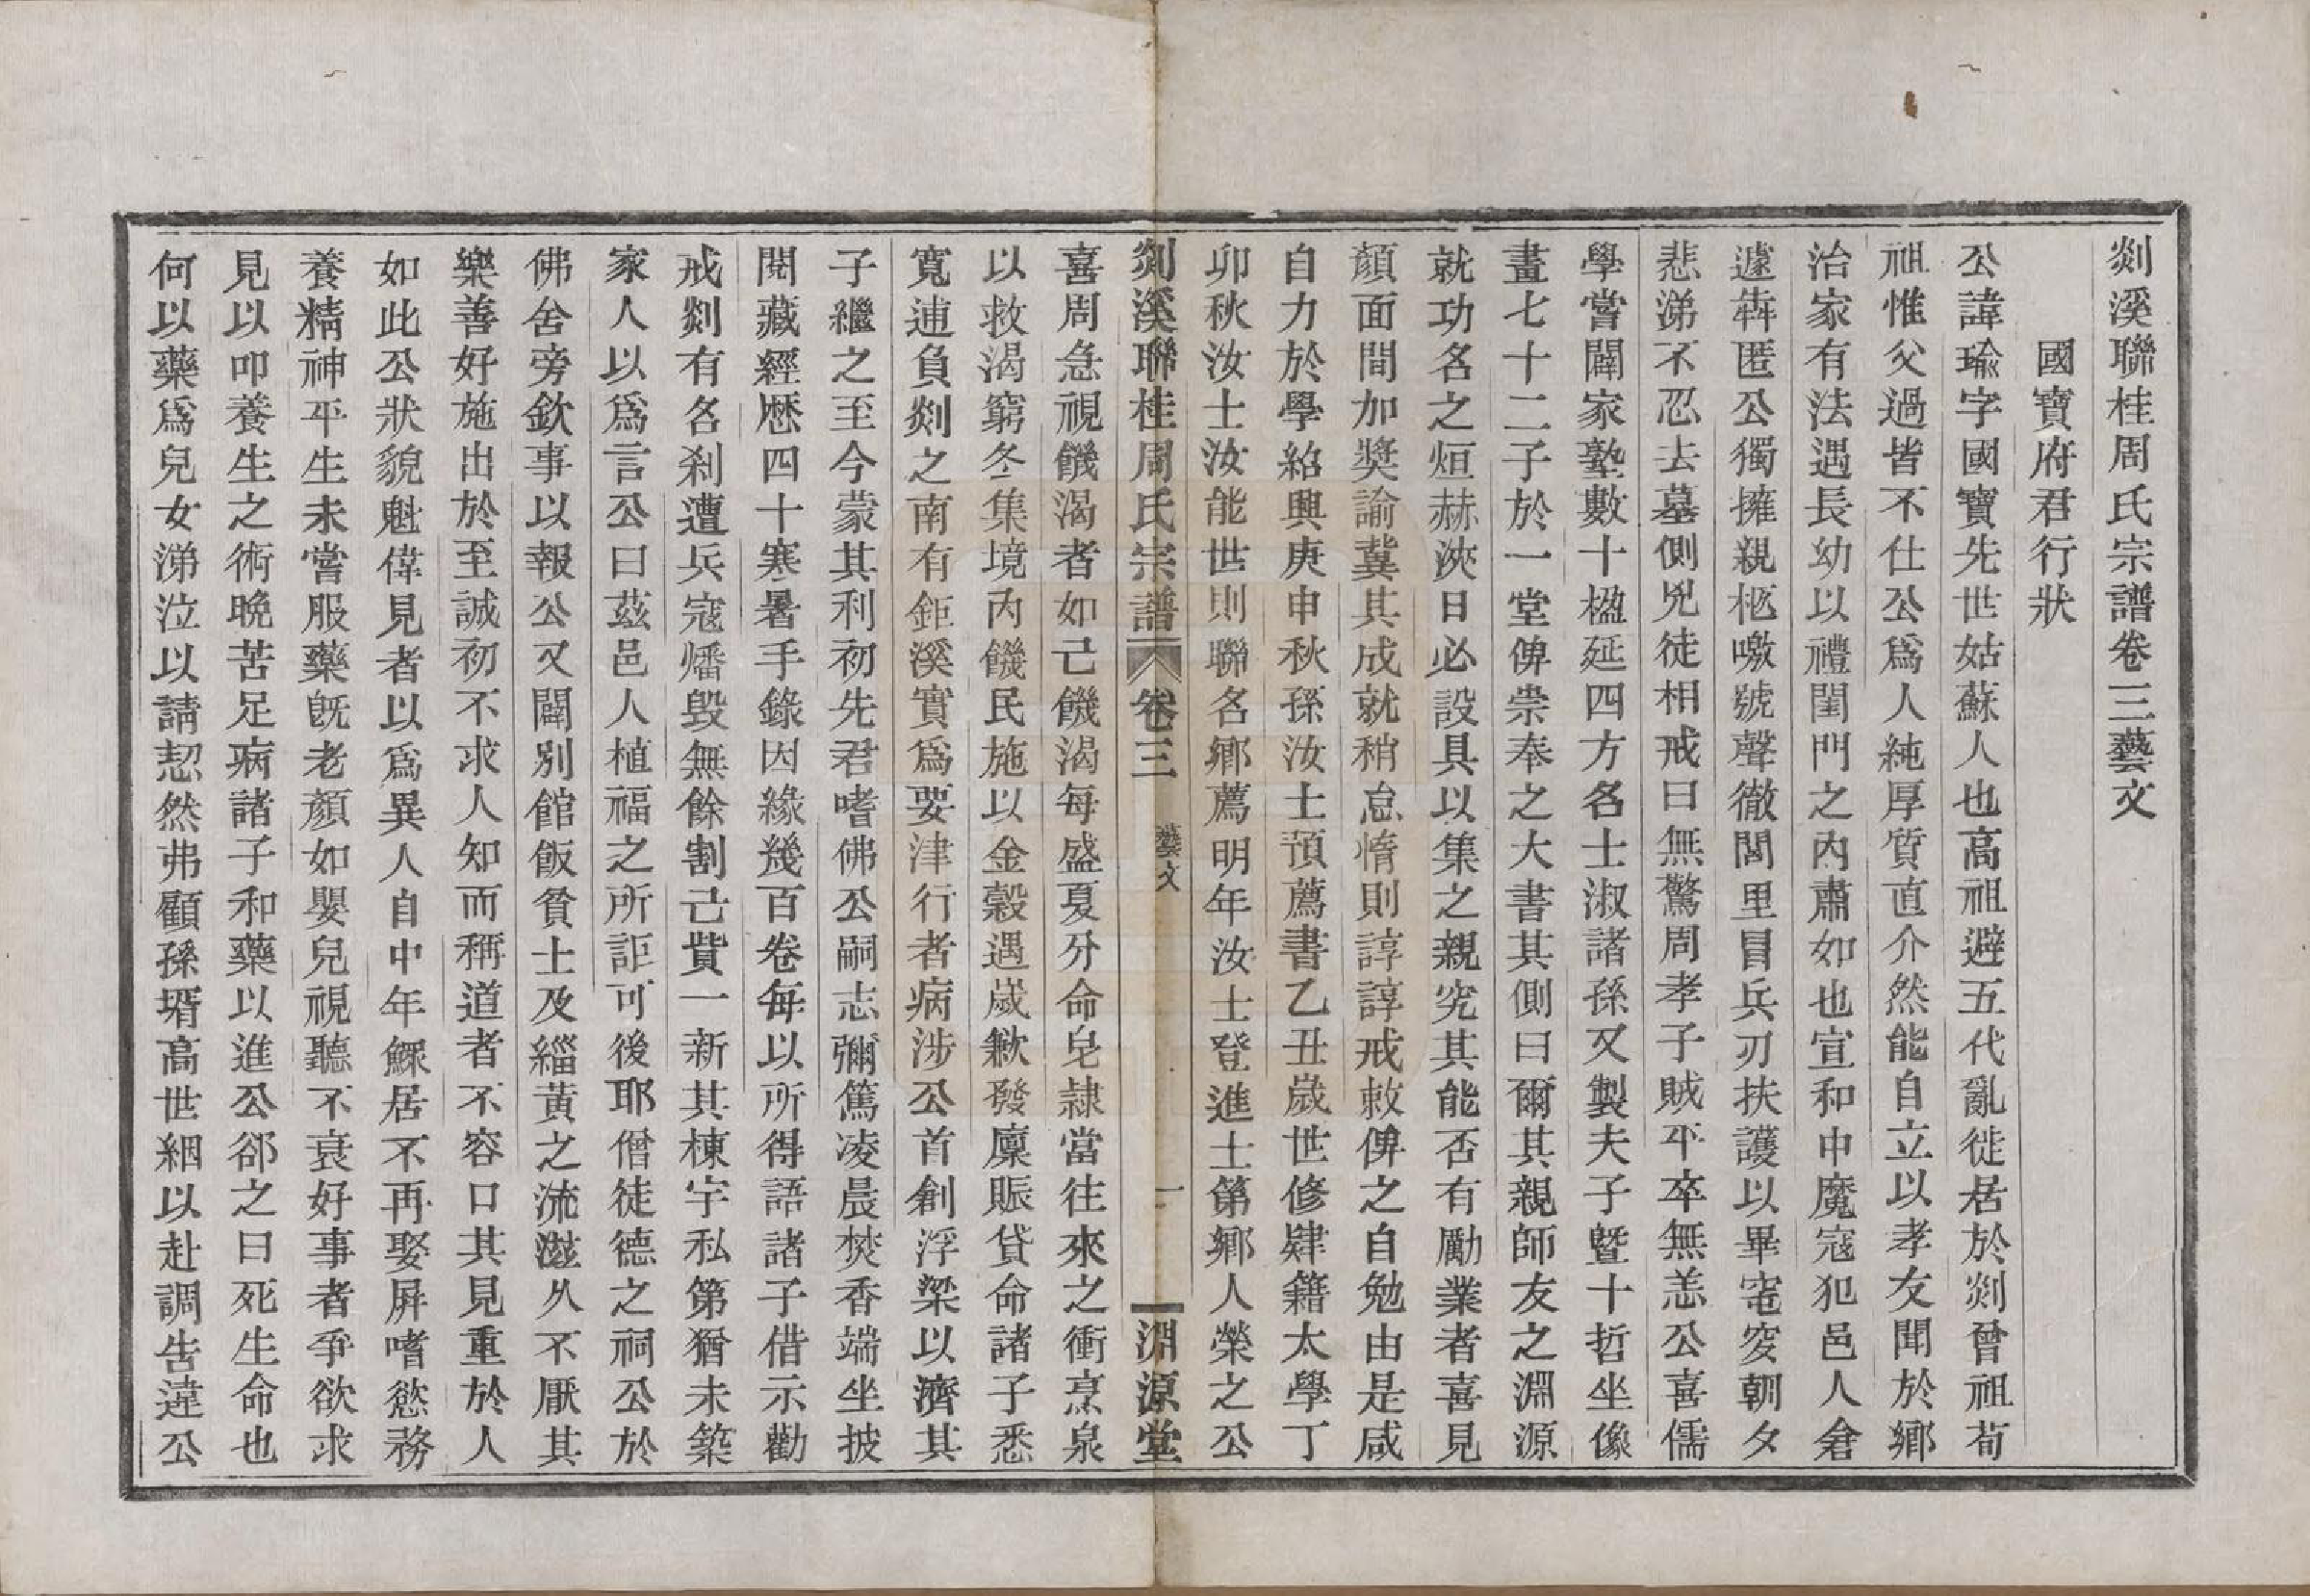 剡溪聯桂周氏宗譜卷三藝文
國寶府君行狀
公諱瑜字國寶先世姑蘇人也高祖避五代亂徙居於剡曾祖荀
祖惟父過皆不仕公爲人純厚質直介然能自立以孝友聞於鄉
治家有法遇長幼以禮閨門之內肅如也宣和中魔寇犯邑人倉
遽奔匿公獨擁親柩噭號聲徹閭里冒兵刃扶護以畢窀穸朝夕
悲涕不忍去墓側兇徒相戒曰無驚周孝子賊平卒無恙公喜儒
學嘗闢家塾數十楹延四方名士淑諸孫又製夫子暨十哲坐像
畫七十二子於一堂俾崇奉之大書其側曰爾其親師友之淵源
就功名之烜赫浹日必設具以集之親究其能否有勵業者喜見
顏面間加獎諭冀其成就稍怠惰則諄諄戒敕俾之自勉由是咸
自力於學紹興庚申秋孫汝士預薦書乙丑歲世修肄籍太學丁
卯秋汝士汝能世則聯名鄉薦明年汝士登進士第鄉人榮之公
剡溪聯桂周氏宗譜 卷三 藝文 一 淵源堂
喜周急視饑渴者如己饑渴每盛夏分命皂隷當往來之衝烹泉
以救渴窮冬集境內饑民施以金穀遇歲歉發廩賑貸命諸子悉
寬逋負剡之南有鉅溪實爲要津行者病涉公首創浮梁以濟其
子繼之至今蒙其利初先君嗜佛公嗣志彌篤凌晨焚香端坐披
閱藏經歷四十寒暑手錄因緣幾百卷每以所得語諸子借示勸
戒剡有名剎遭兵寇燔毀無餘割己貲一新其棟宇私第猶未築
家人以爲言公曰茲邑人植福之所詎可後耶僧徒德之祠公於
佛舍旁欽事以報公又闢別館飯貧士及緇黃之流滋久不厭其
樂善好施出於至誠初不求人知而稱道者不容口其見重於人
如此公狀貌魁偉見者以爲異人自中年鰥居不再娶屏嗜慾務
養精神平生未嘗服藥旣老顏如嬰兒視聽不衰好事者爭欲求
見以叩養生之術晚苦足病諸子和藥以進公郤之曰死生命也
何以藥爲兒女涕泣以請恝然弗顧孫壻高世絪以赴調告違公